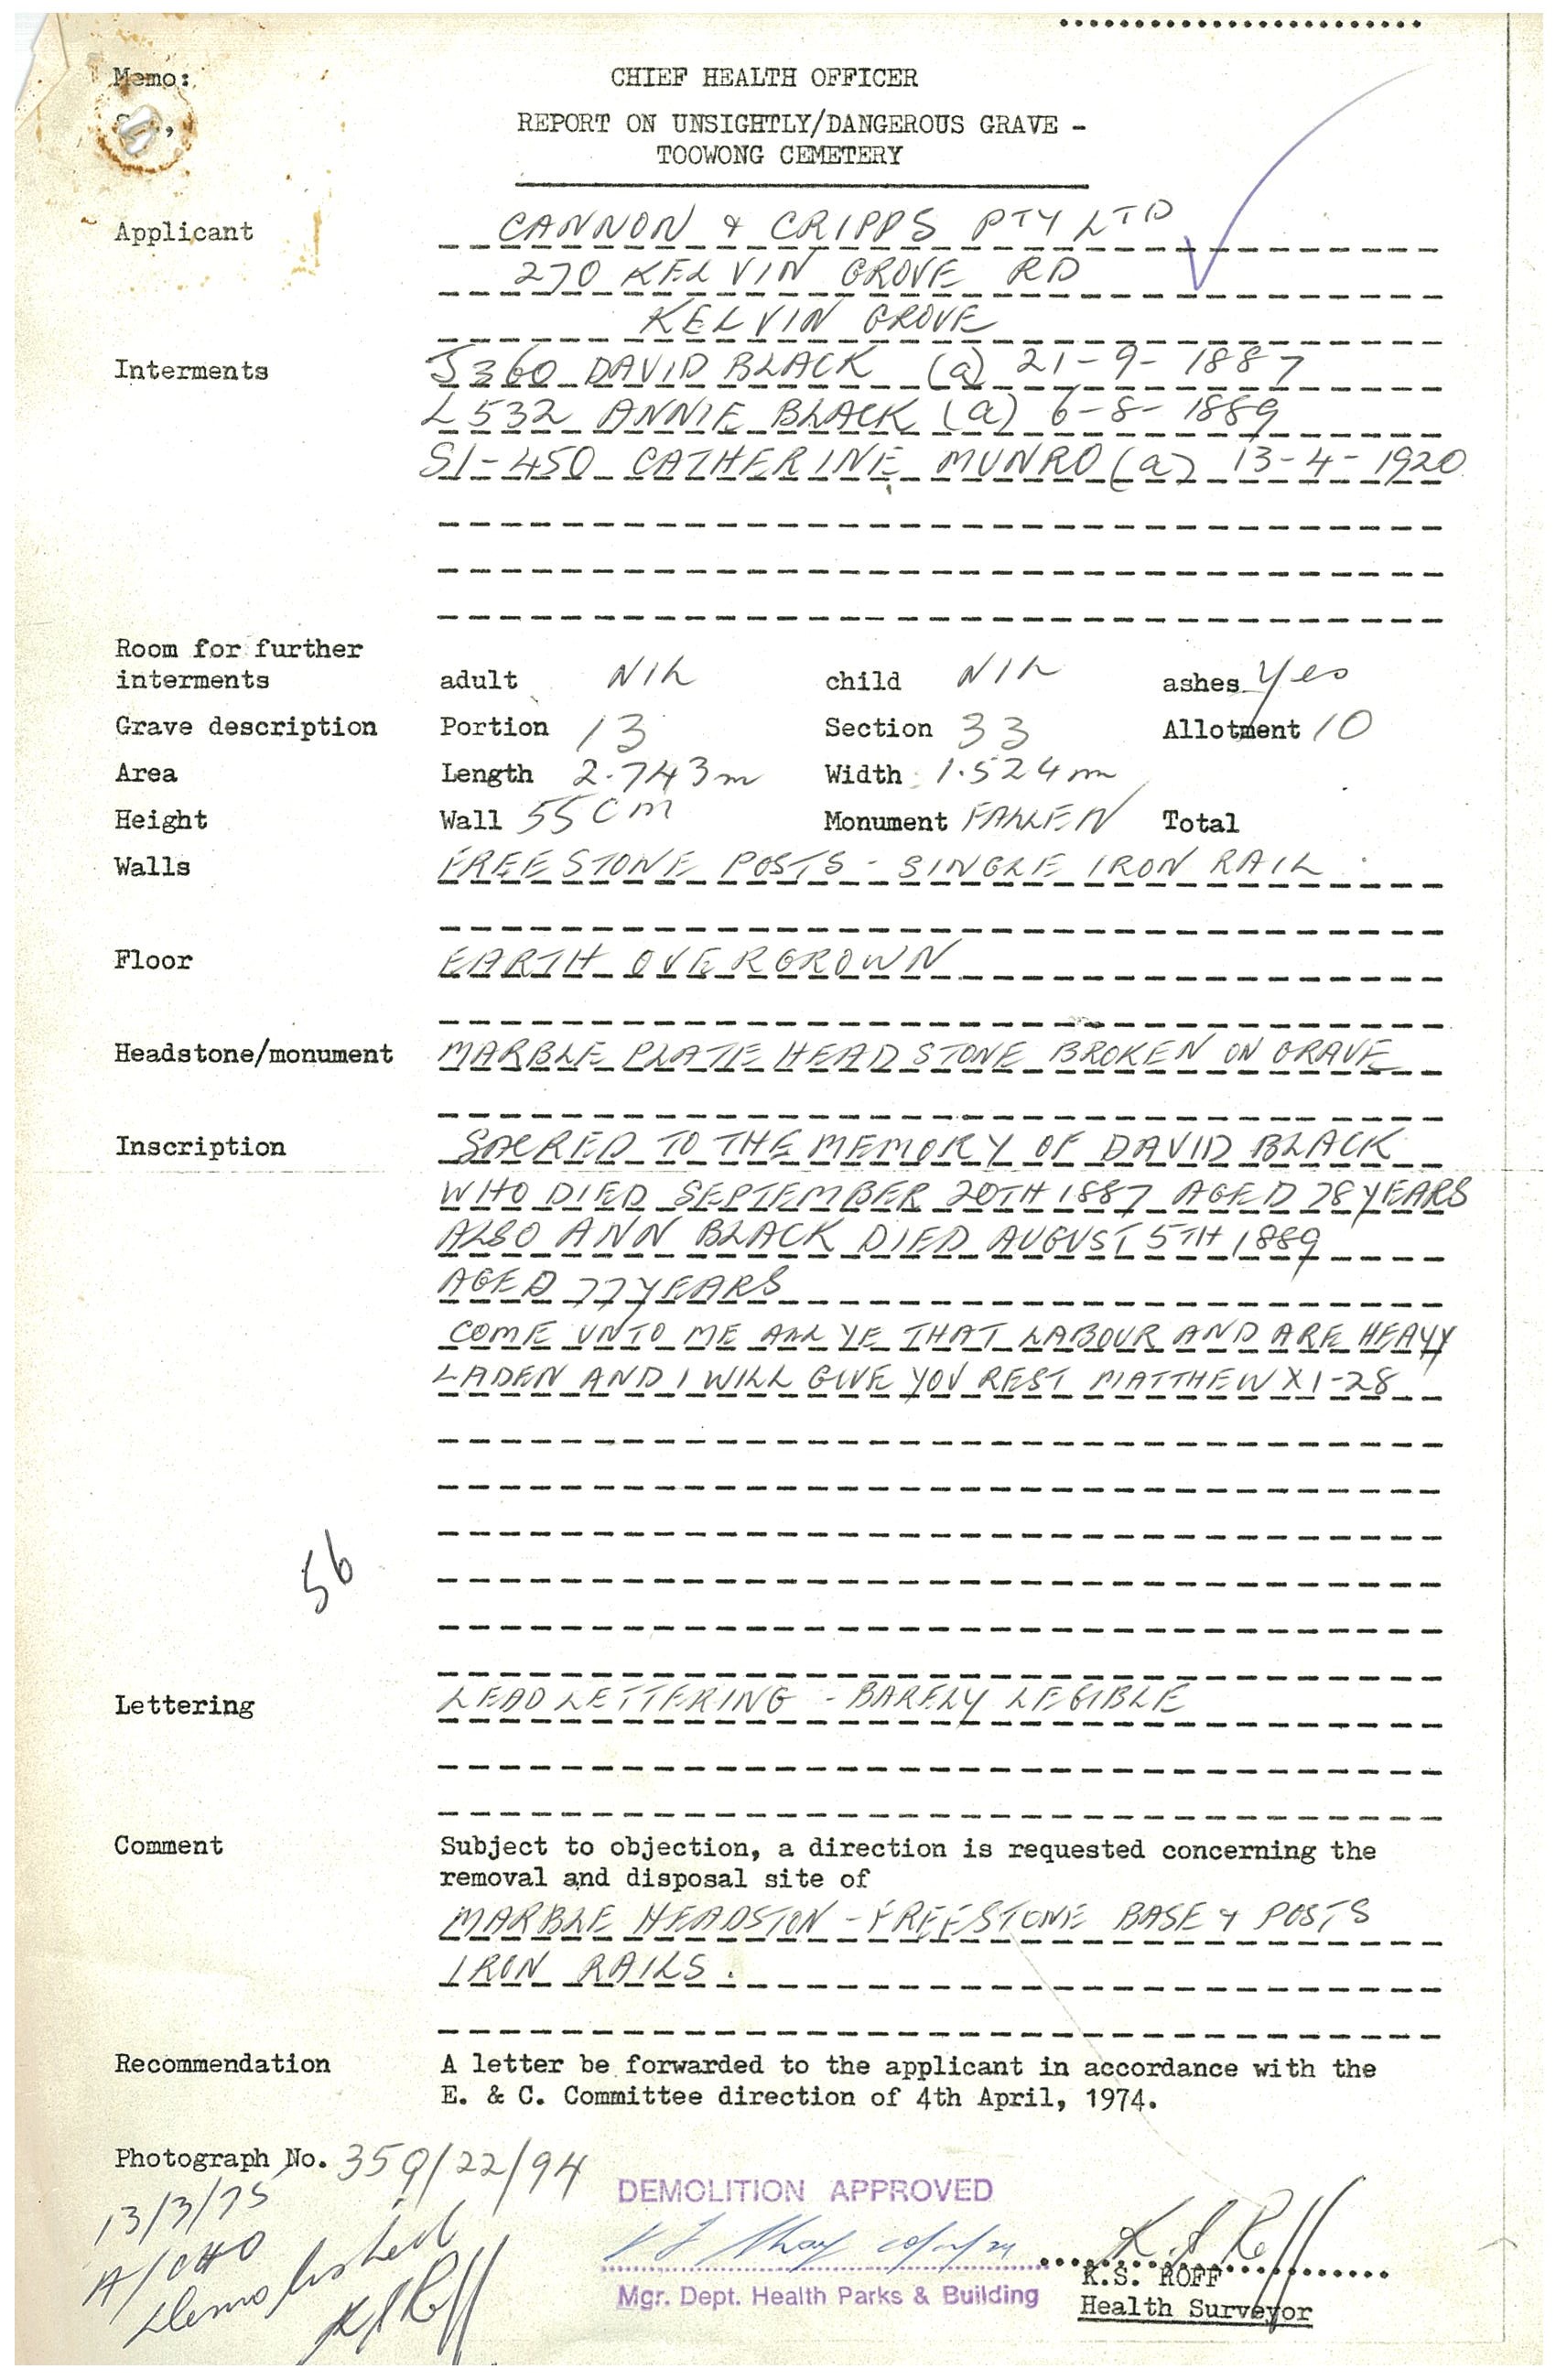 Memo:
CHIEF HEALTH OFFICER
REPORT ON UNSIGHTLY/DANGEROUS GRAVE -
TOOWONG CEMETERY
Applicant CANNON & CRIPPS PTY LTD
270 KELVIN GROVE RD
KELVIN GROVE
Interments J360 DAVID BLACK (a) 21-9-1887
L532 ANNIE BLACK (a) 6-8-1889
S1-450 CATHERINE MUNRO (a) 13-4-1920
Room for further
interments adult NIL child NIL ashes Yes
Grave description Portion 13 Section 33 Allotment 10
Area Length 2.743m Width 1.524m
Height Wall 55cm Monument FALLEN Total
Walls FREESTONE POSTS - SINGLE IRON RAIL
Floor EARTH OVERGROWN
Headstone/monument MARBLE PLATE HEADSTONE BROKEN ON GRAVE
Inscription SACRED TO THE MEMORY OF DAVID BLACK
WHO DIED SEPTEMBER 20TH 1887 AGED 78 YEARS
ALSO ANN BLACK DIED AUGUST 5TH 1889
AGED 77 YEARS
COME UNTO ME ALL YE THAT LABOUR AND ARE HEAVY
LADEN AND I WILL GIVE YOU REST MATTHEW XI-28
56
Lettering LEAD LETTERING - BARELY LEGIBLE
Comment Subject to objection, a direction is requested concerning the
removal and disposal site of
MARBLE HEADSTON - FREESTONE BASE & POSTS
IRON RAILS.
Recommendation A letter be forwarded to the applicant in accordance with the
E. & C. Committee direction of 4th April, 1974.
Photograph No. 359/22/94
13/3/75
A/CHO
Demolished
K S Roff
DEMOLITION APPROVED
Mgr. Dept. Health Parks & Building
K S Roff
K.S. ROFF
Health Surveyor